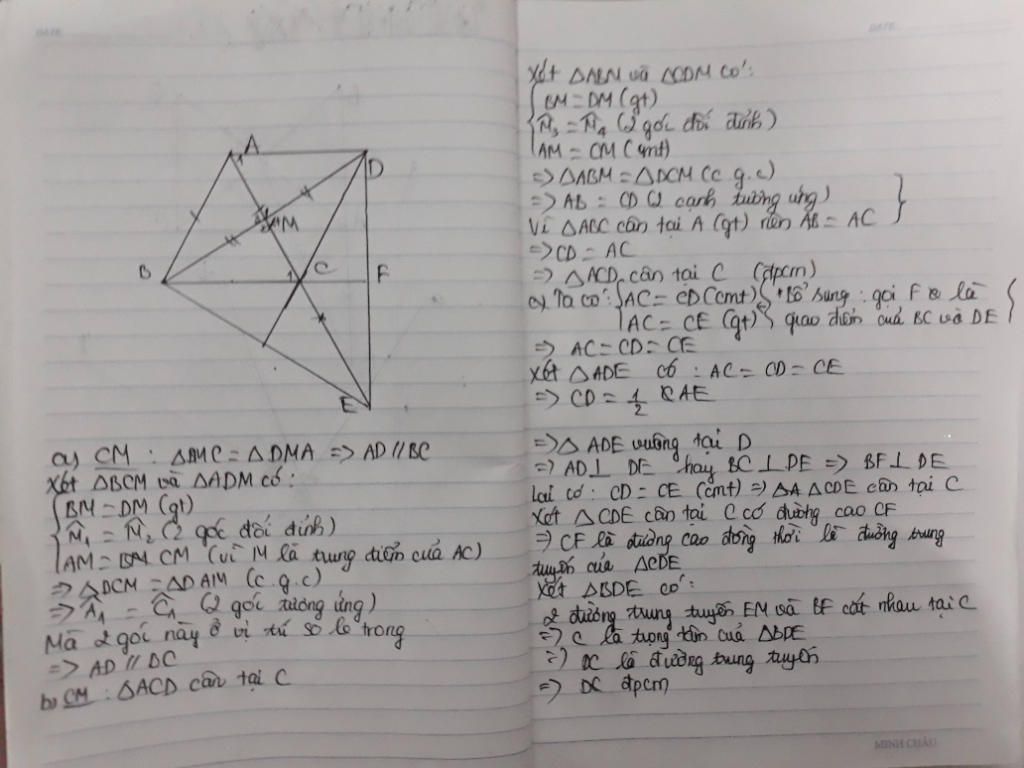 DATE
A
D
M
B
1
C
F
E
a) CM : ΔBMC = ΔDMA => AD // BC
Xét ΔBCM và ΔADM có :
BM = DM (gt)
M̂₁ = M̂₂ (2 góc đối đỉnh)
AM = CM (vì M là trung điểm của AC)
=> ΔDCM = ΔDAM (c.g.c)
=> Â₁ = Ĉ₁ (2 góc tương ứng)
Mà 2 góc này ở vị trí so le trong
=> AD // DC
b) CM : ΔACD cân tại C
DATE
Xét ΔABM và ΔCDM có :
BM = DM (gt)
M̂₃ = M̂₄ (2 góc đối đỉnh)
AM = CM (cmt)
=> ΔABM = ΔDCM (c.g.c)
=> AB = CD (2 cạnh tương ứng)
Vì ΔABC cân tại A (gt) nên AB = AC
=> CD = AC
=> ΔACD cân tại C (đpcm)
c) Ta có : AC = CD (cmt) * Bổ sung : gọi F là
AC = CE (gt) giao điểm của BC và DE
=> AC = CD = CE
Xét ΔADE có : AC = CD = CE
=> CD = 1/2 AE
=> Δ ADE vuông tại D
=> AD ⊥ DE hay BC ⊥ DE => BF ⊥ DE
Lại có : CD = CE (cmt) => ΔCDE cân tại C
Xét ΔCDE cân tại C có đường cao CF
=> CF là đường cao đồng thời là đường trung
tuyến của ΔCDE
Xét ΔBDE có :
2 đường trung tuyến EM và BF cắt nhau tại C
=> C là trọng tâm của ΔBDE
=> DC là đường trung tuyến
=> DC đpcm
MINH CHÂU